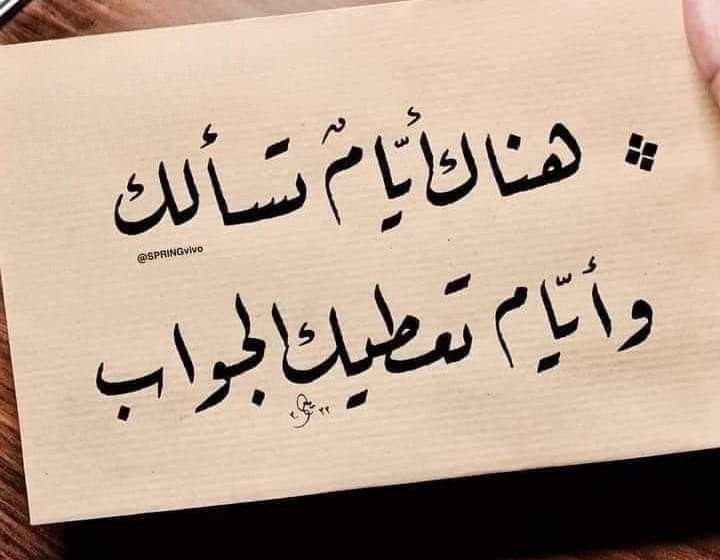 هناك أيّامٌ تسألك
@SPRINGvivo
وأيّام تعطيك الجواب